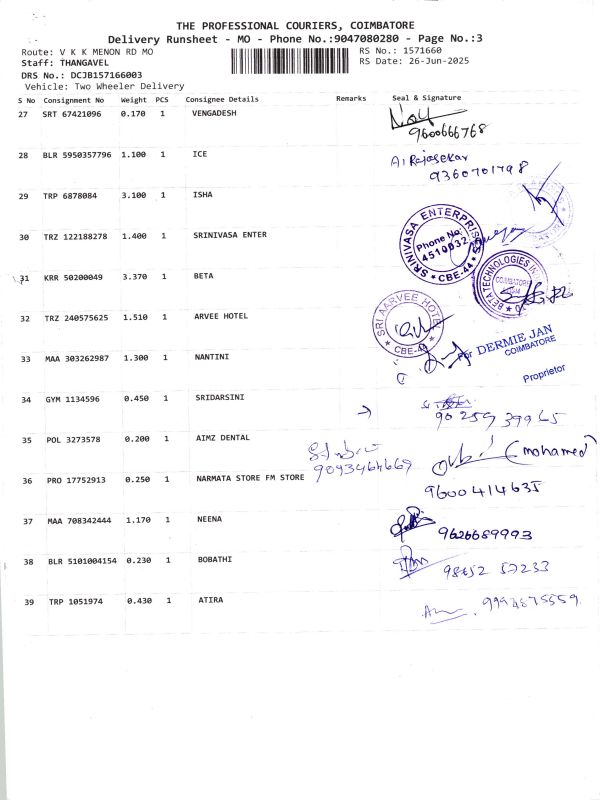 THE PROFESSIONAL COURIERS, COIMBATORE
Delivery Runsheet - MO - Phone No.:9047080280 - Page No.:3
Route: V K K MENON RD MO
RS No.: 1571660
Staff: THANGAVEL
RS Date: 26-Jun-2025
DRS No.: DCJB157166003
Vehicle: Two Wheeler Delivery
S No Consignment No Weight PCS Consignee Details Remarks Seal & Signature
27 SRT 67421096 0.170 1 VENGADESH
9600666768
28 BLR 5950357796 1.100 1 ICE
A1 Rajasekar
9360701798
29 TRP 6878084 3.100 1 ISHA
30 TRZ 122188278 1.400 1 SRINIVASA ENTER
SRINIVASA ENTERPRISE
Phone No:
4510032
* CBE-44 *
31 KRR 50200049 3.370 1 BETA
BETA TECHNOLOGIES
COIMBATORE
32 TRZ 240575625 1.510 1 ARVEE HOTEL
SRI AARVEE HOTEL
* CBE-44 *
33 MAA 303262987 1.300 1 NANTINI
For DERMIE JAN
COIMBATORE
Proprietor
34 GYM 1134596 0.450 1 SRIDARSINI
90259 39965
35 POL 3273578 0.200 1 AIMZ DENTAL
(mohamed)
9093464669
36 PRO 17752913 0.250 1 NARMATA STORE FM STORE
9600414635
37 MAA 708342444 1.170 1 NEENA
9626689993
38 BLR 5101004154 0.230 1 BOBATHI
39 TRP 1051974 0.430 1 ATIRA
9994875559